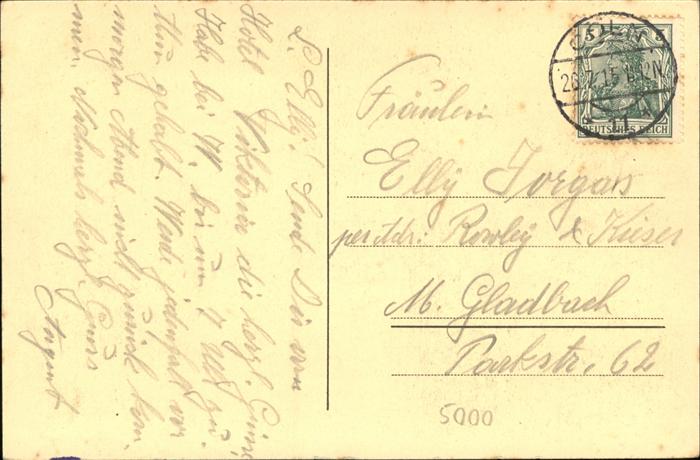 L. Elly! Sende Dir vom
Hotel Viktoria die herzl. Grüße
Habe bei W. bis um 7 Uhr zu
thun gehabt. Werde jedenfalls vor
morgen Abend nicht zurück kom
men. Nochmals herzl. Gruß
August
CÖLN
26.7.15 12N
* 11 *
5 5
DEUTSCHES REICH
Fräulein
Elly Jorgas
per Adr: Rowley & Kieser
M. Gladbach
Parkstr. 62
5000